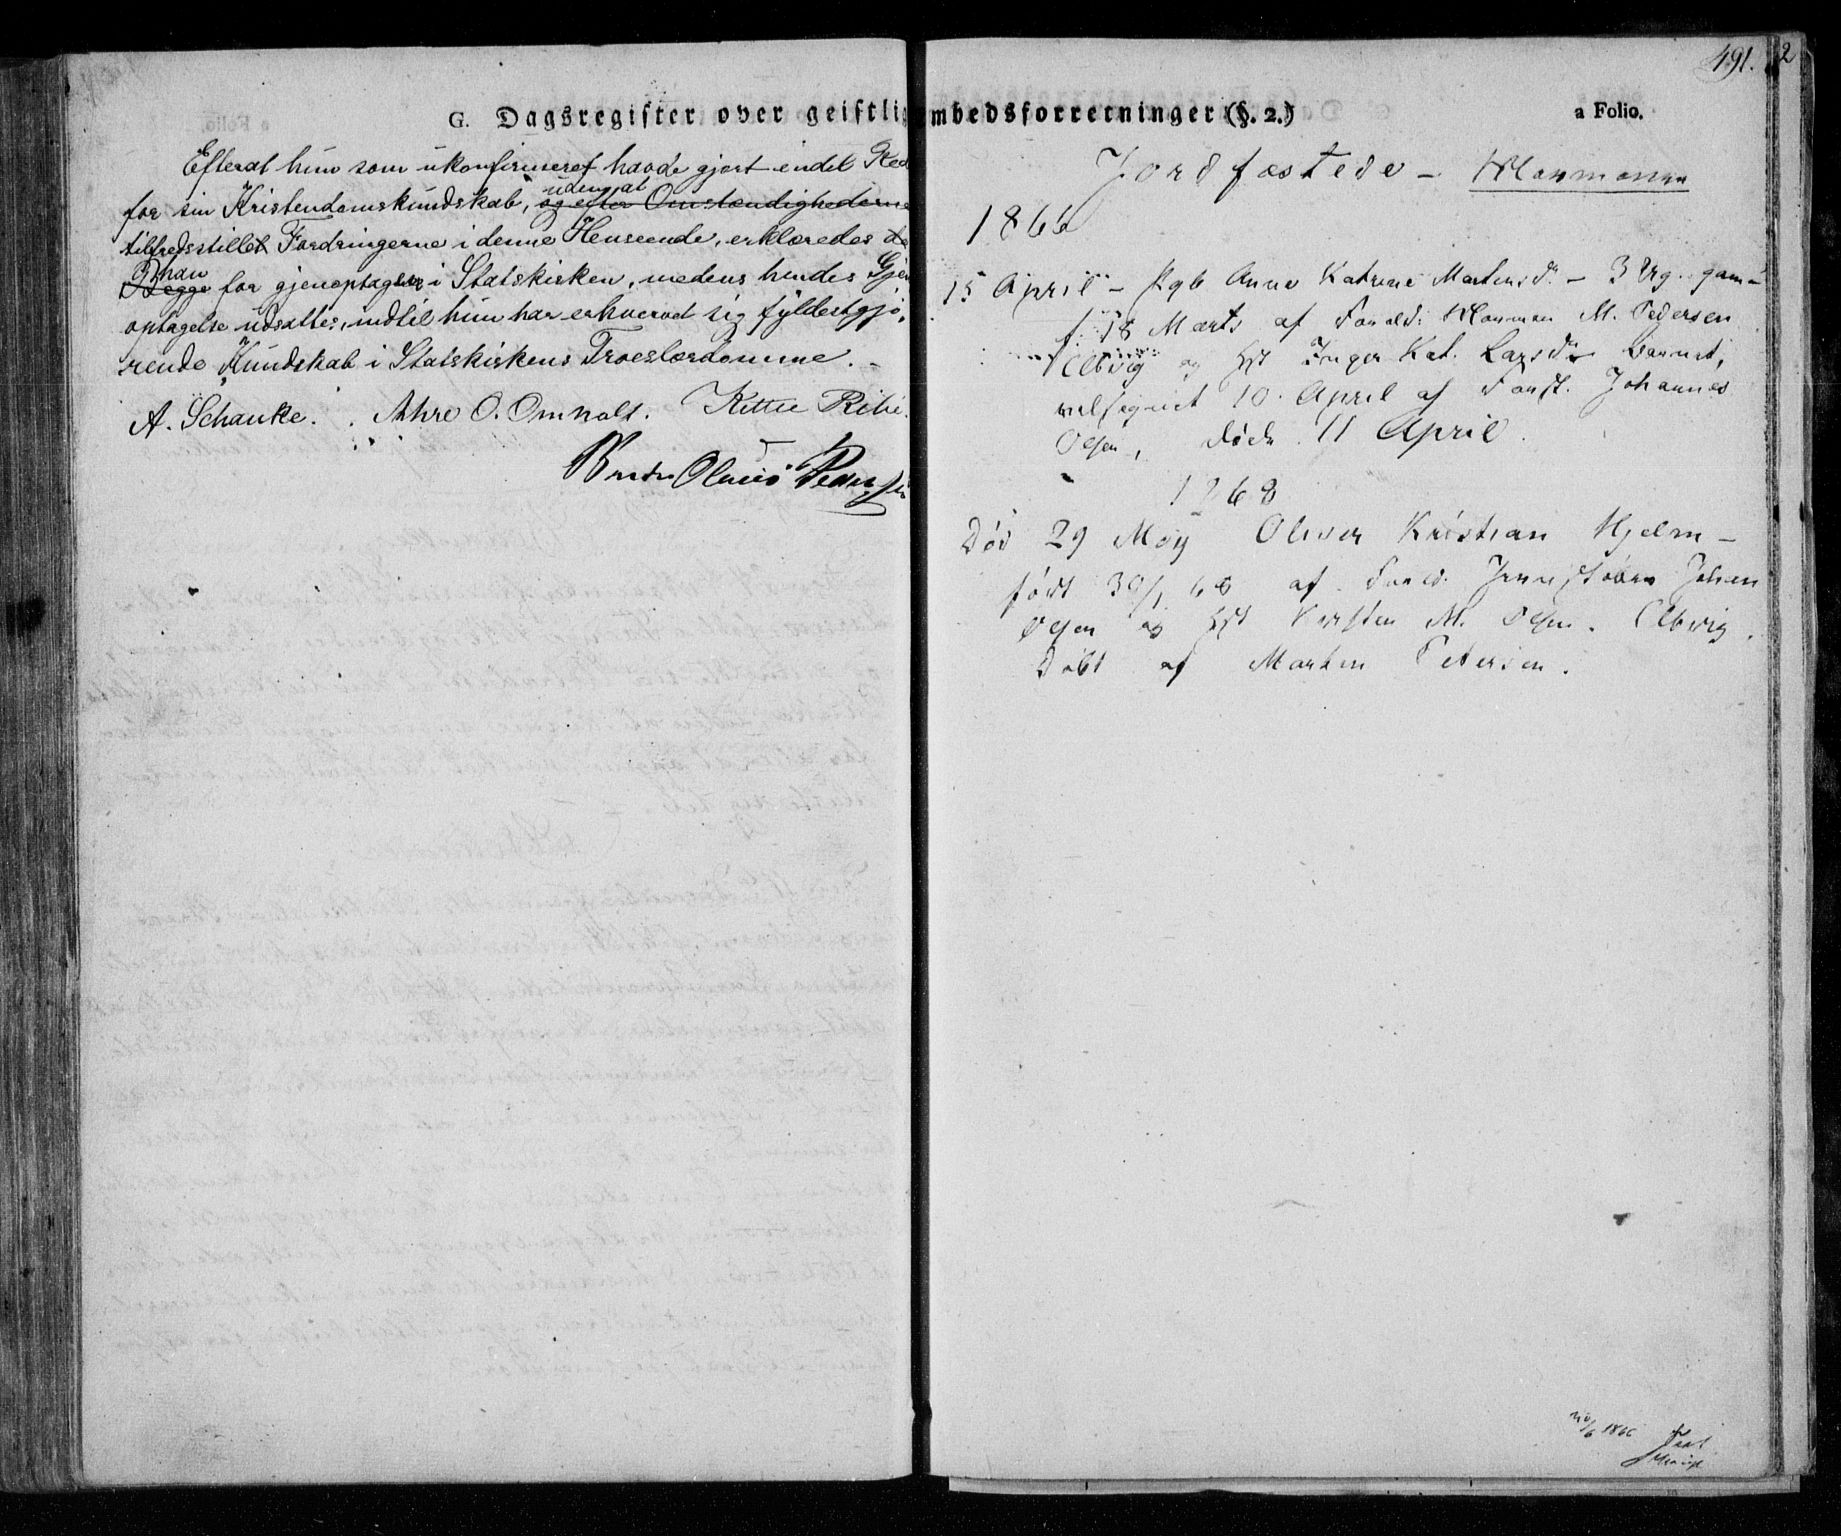 G. Dagsregister over geistli mbedsforretninger (§. 2.)
Efterat hun som ukonfirmeret havde gjort endel Red
uden at
for sin Kristendomskundskab, og efter Omstændighederne
tilfredsstillet Fordringerne i denne Henseende, erklæredes de
han
Begge for gjenoptagen i Statskirken, medens hendes Gjen
optagelse udsattes, indtil hun har erhvervet sig fyldestgjø-
rende Kundskab i Statskirkens Troeslærdomme.
A. Schanke. Athre O. Omholt. Kittil
Olaus Pedersen
491.
2
a Folio.
Jordfæstede - Mormoner
1866
15 April - Pgb Anne Katrine Martinsdr - 3 Ug. gam-
f. 18 Marts af Foræld: Mormon M. Pedersen
Elvrig og Hst Inger Kat. Larsdr Barnet,
velsignet 10. April af Forst. Johannes
Olsen, døde 11 April.
1868
Død 29 May Oliver Kristian Hjelm -
født 30/1 68 af Foræld. Jernstøber Johan
Olsen og Hst Kirsten M. Olsen. Elvrig.
Døbt af Martin Petersen.
/6 1866